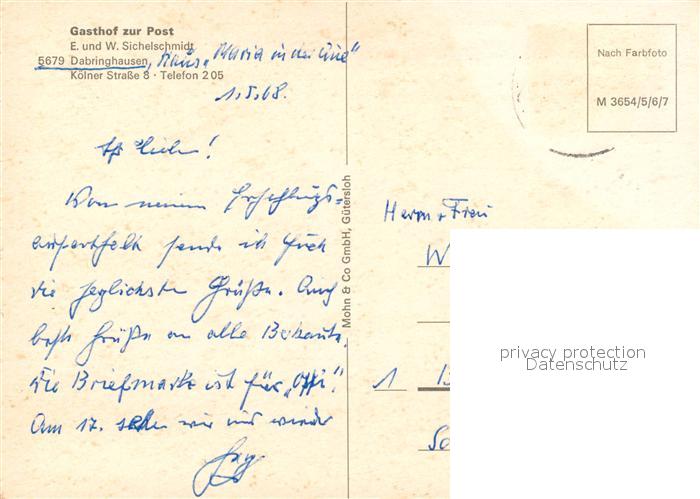 Gasthof zur Post
E. und W. Sichelschmidt
5679 Dabringhausen, Haus "Maria in der Aue"
Kölner Straße 8 · Telefon 2 05
1.5.68.
Ihr Lieben!
Von meinem Erholungs-
aufenthalt sende ich Euch
die herzlichsten Grüße. Auch
beste Grüße an alle Bekannte.
Die Briefmarke ist für "Offi".
Am 17. sehen wir uns wieder
Mohn & Co GmbH, Gütersloh
Nach Farbfoto
M 3654/5/6/7
Herrn + Frau
W
1 B
privacy protection
Datenschutz